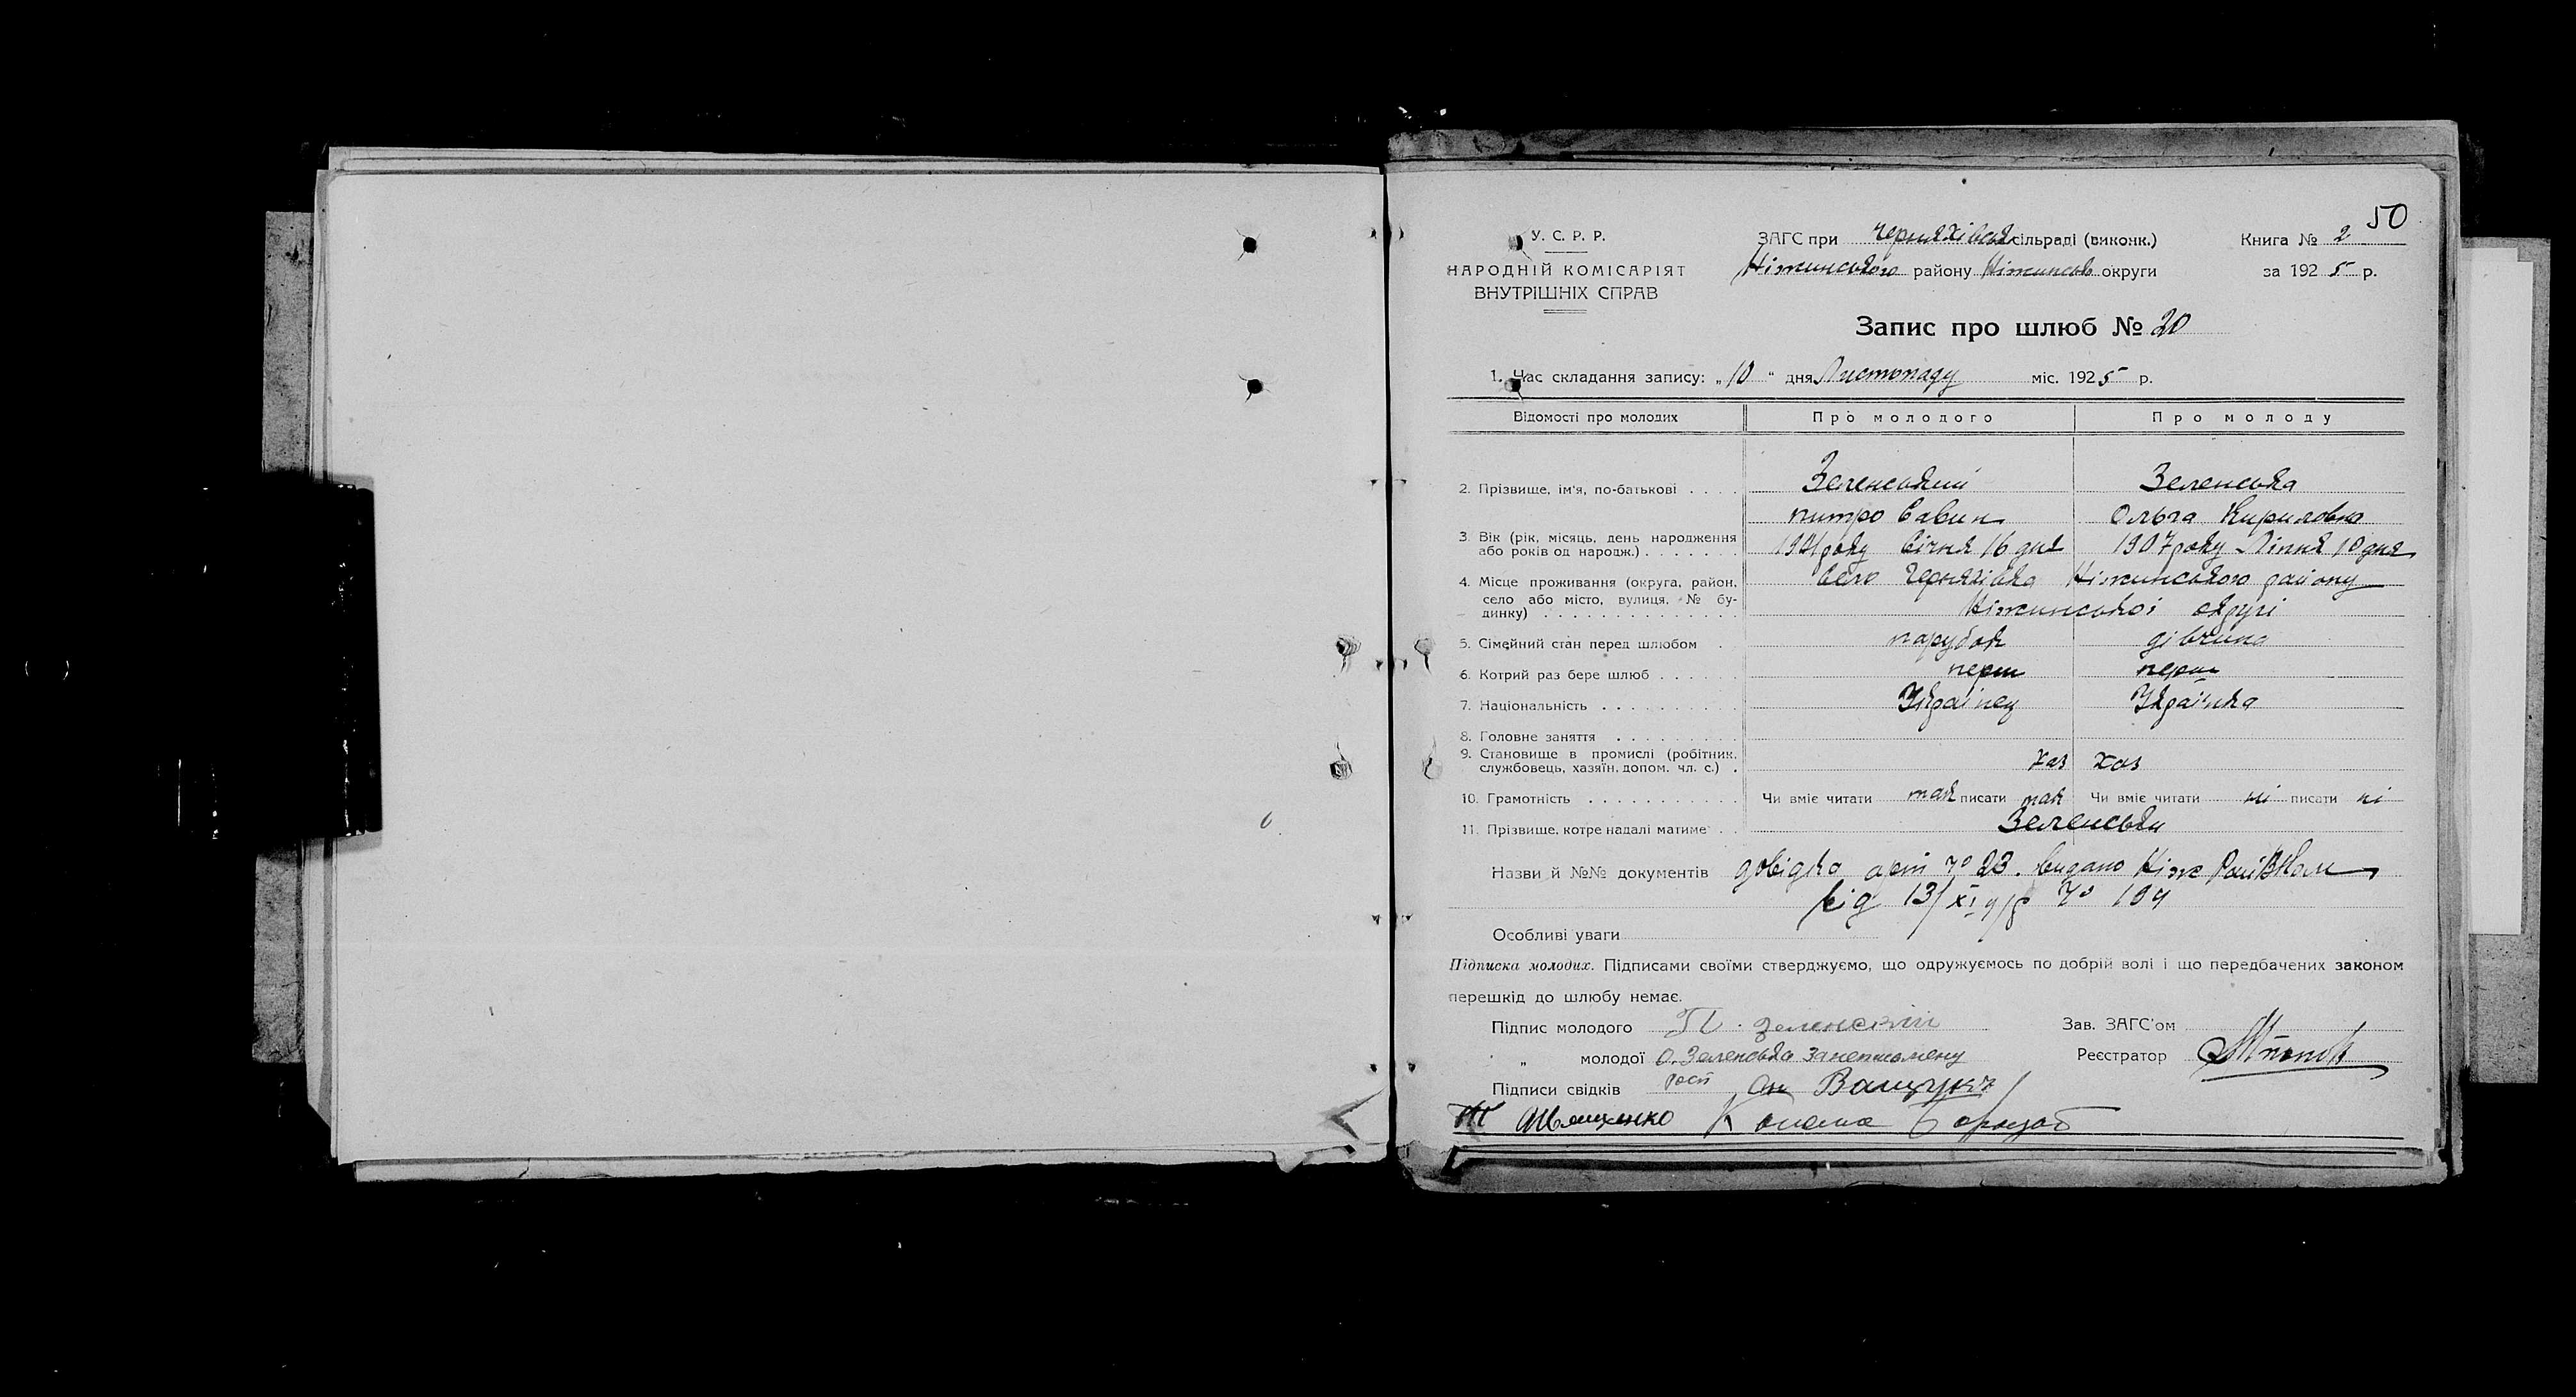 50
У. С. Р. Р.
НАРОДНІЙ КОМІСАРІЯТ
ВНУТРІШНІХ СПРАВ
ЗАГС при Черняхівськ сільраді (виконк.)
Ніжинського району Ніжинськ округи
Книга № 2
за 1925 р.
Запис про шлюб № 20
1. Час складання запису: „10“ дня Листопаду міс. 1925 р.
Відомості про молодих Про молодого Про молоду
2. Прізвище, ім'я, по-батькові . . . . Зеленський Зеленська
питро Савин Ольга Кириловна
3. Вік (рік, місяць, день народження
або років од народж.) . . . . . . . 1901 року Січня 16 дня 1907 року Ліпня 10 дня
4. Місце проживання (округа, район, село Черняхівка Ніжинського району
село або місто, вулиця, № бу-
динку) . . . . . . . . . . . . . . Ніжинської округі
5. Сімейний стан перед шлюбом . парубок дівчина
6. Котрий раз бере шлюб . . . . . . перш перш
7. Національність . . . . . . . . . . Українец Українка
8. Головне заняття . . . . . . . . .
9. Становище в промислі (робітник,
службовець, хазяїн, допом. чл. с.) . хаз хаз
10. Грамотність . . . . . . . . . . . Чи вміє читати так писати так Чи вміє читати ні писати ні
11. Прізвище, котре надалі матиме . . Зеленськи
Назви й №№ документів довідка № 23. видано Ніж
від 13/XI № 194
Особливі уваги
Підписка молодих. Підписами своїми стверджуємо, що одружуємось по добрій волі і що передбачених законом
перешкід до шлюбу немає.
Підпис молодого П. Зеленский Зав. ЗАГС'ом
„ молодої О. Зеленська за неписьмену Реєстратор
Підписи свідків